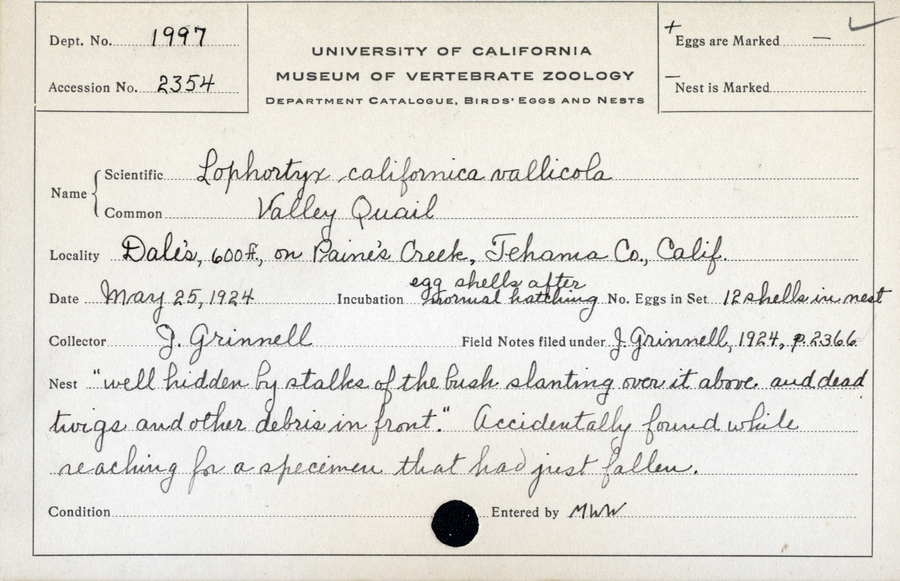 Dept. No. 1997
Accession No. 2354
UNIVERSITY OF CALIFORNIA
MUSEUM OF VERTEBRATE ZOOLOGY
DEPARTMENT CATALOGUE, BIRDS' EGGS AND NESTS
+ Eggs are Marked —
— Nest is Marked
Name
Scientific Lophortyx californica vallicola
Common Valley Quail
Locality Dale's, 600 ft., on Paine's Creek, Tehama Co., Calif.
Date May 25, 1924 Incubation egg shells after normal hatching No. Eggs in Set 12 shells in nest
Collector J. Grinnell Field Notes filed under J. Grinnell, 1924, p. 2366
Nest "well hidden by stalks of the bush slanting over it above and dead
twigs and other debris in front." Accidentally found while
reaching for a specimen that had just fallen.
Condition Entered by MWW